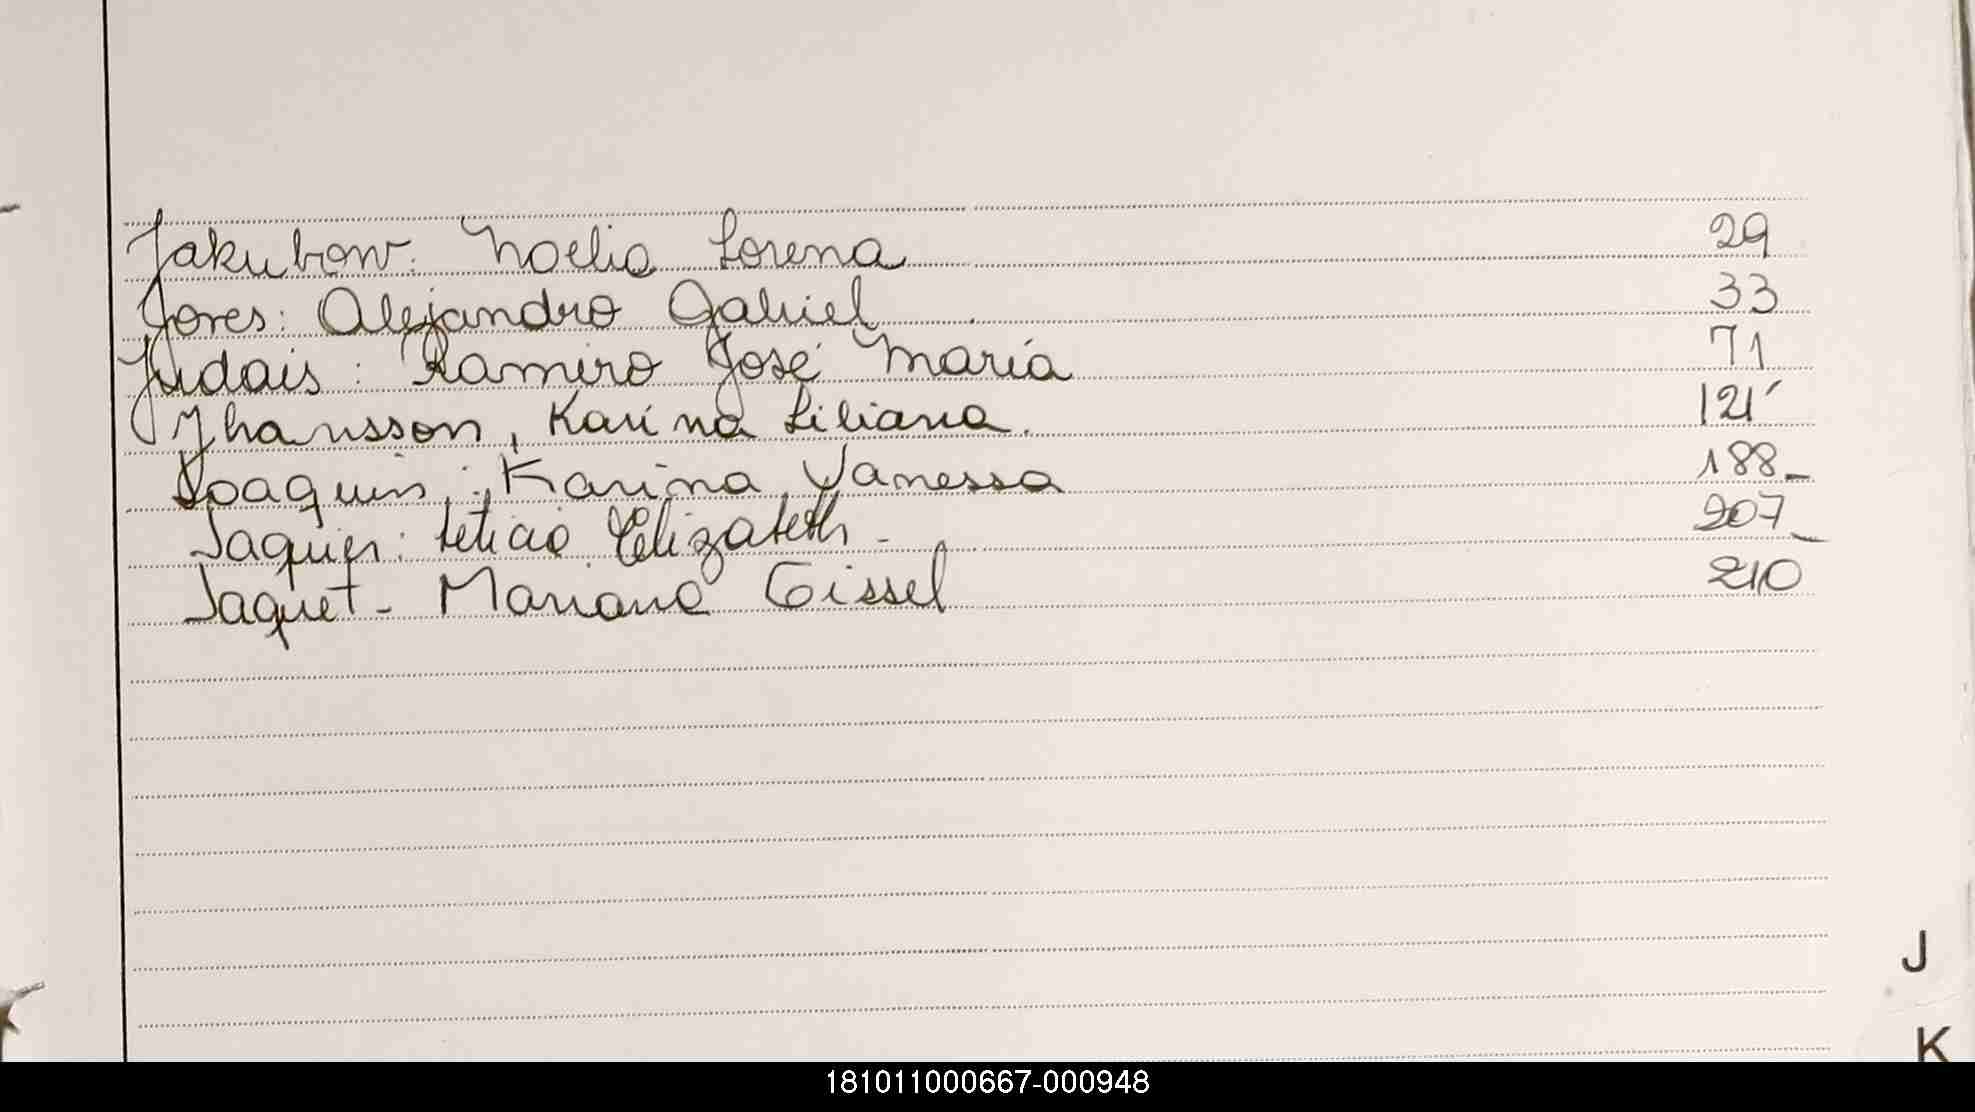 Jakubow: Noelia Lorena 29
Jores: Alejandro Gabriel 33
Judais: Ramiro José María 71
Jhansson, Karina Liliana. 121
Joaquin: Karina Vanessa 188-
Jaquier: Leticia Elizabeth - 207-
Jaquet - Mariana Gissel 210
J
K
181011000667-000948